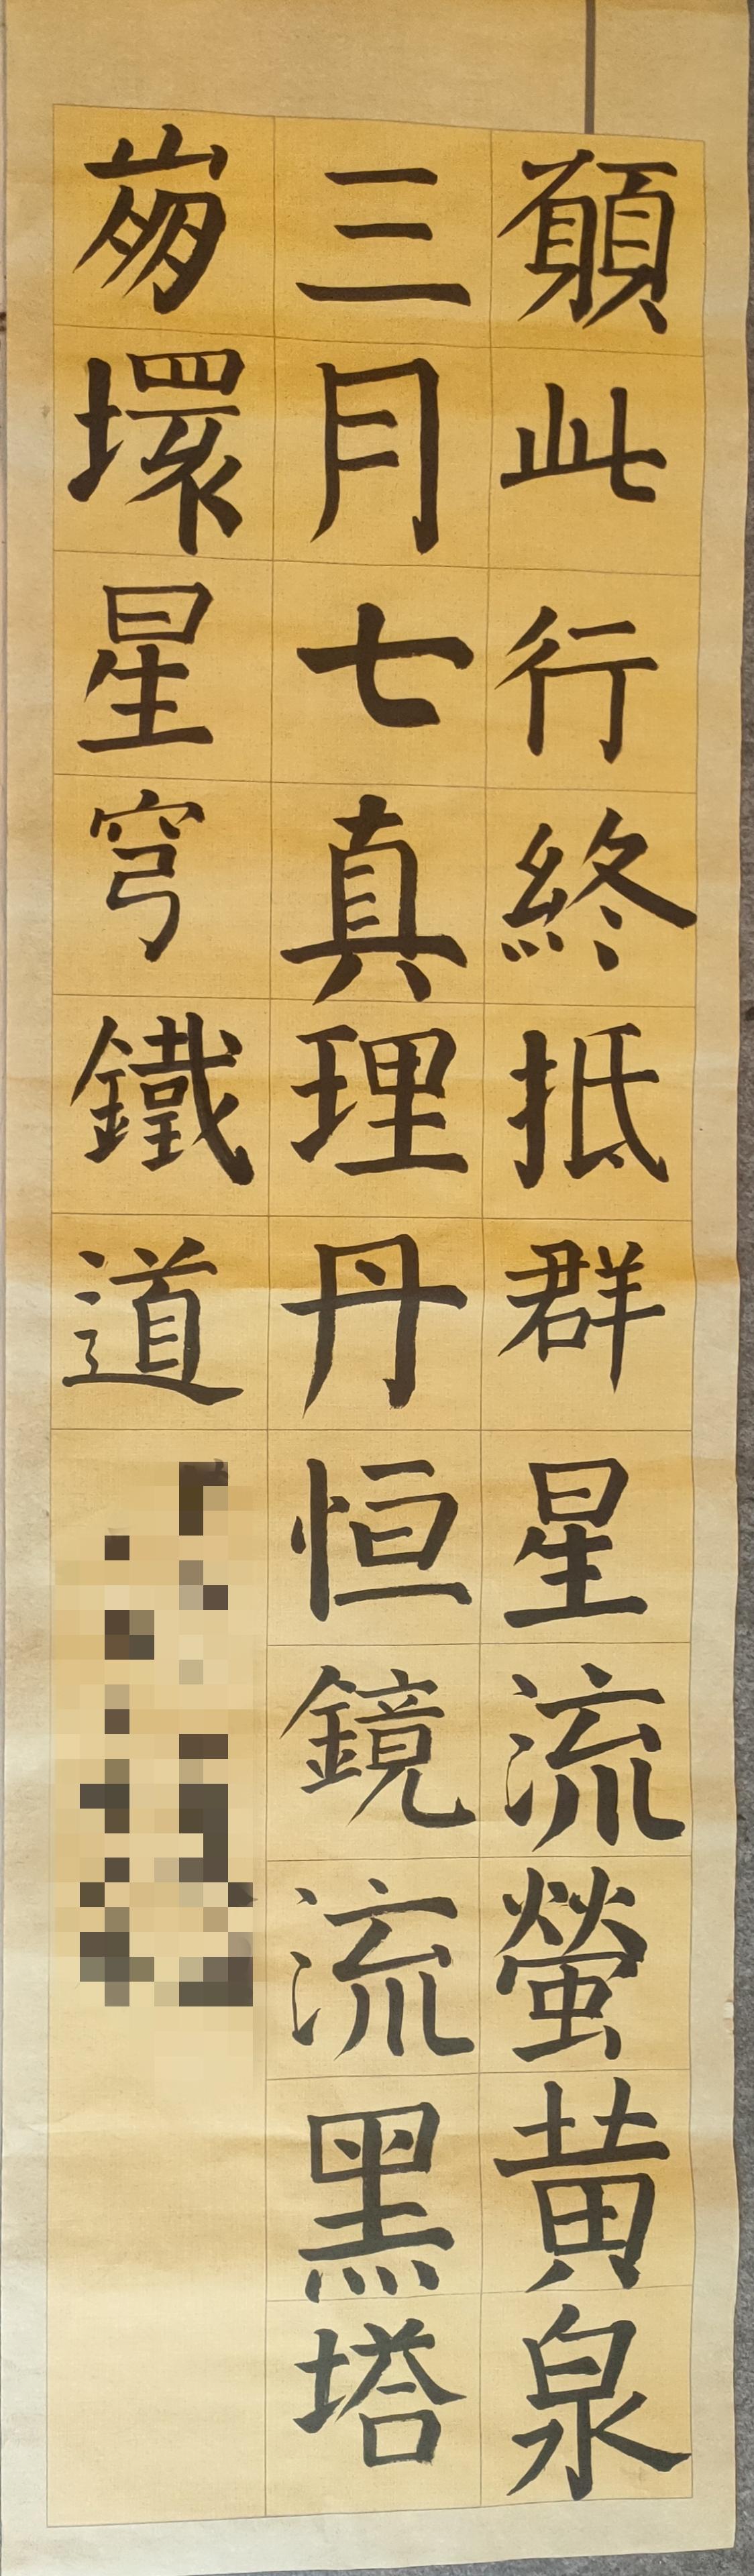 願此行終抵群星流螢黄泉
三月七真理丹恒鏡流黑塔
崩壞星穹鐵道